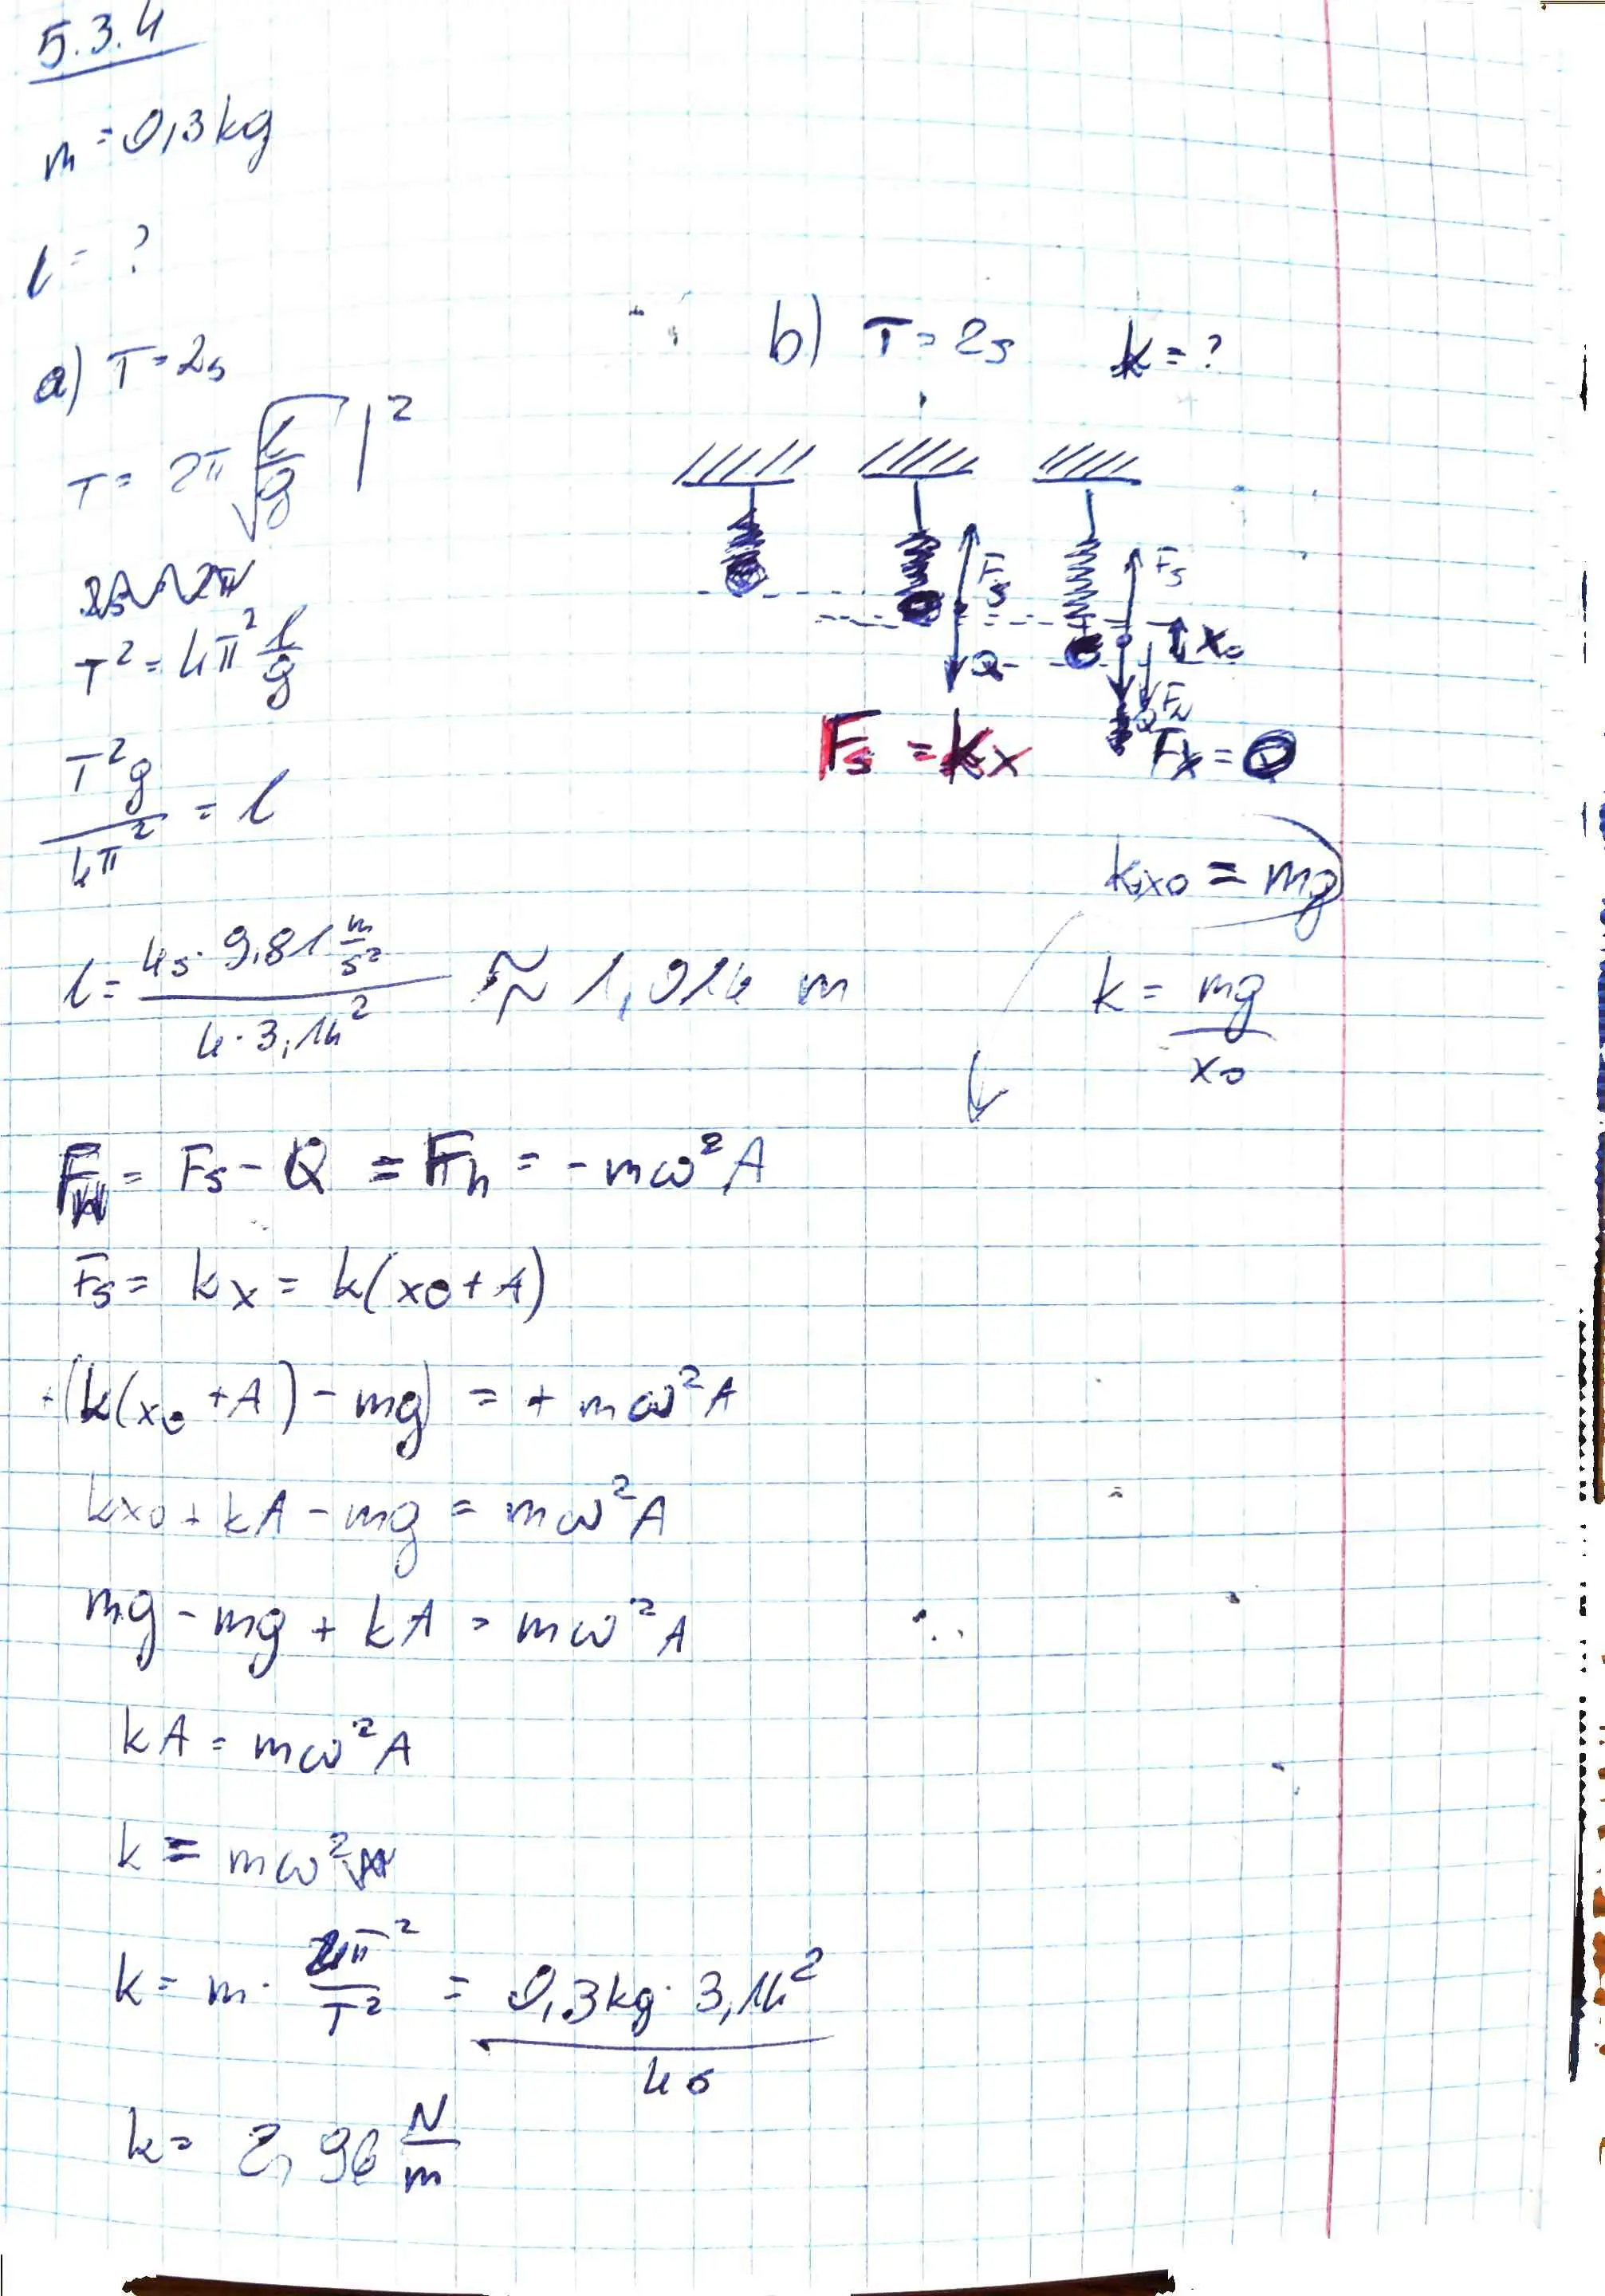 5.3.4
m = 0,3 kg
l = ?
a) T = 2s
T = 2π √(l/g) |²
T² = 4π² l/g
T²g / 4π² = l
l = 4s · 9,81 m/s² / 4 · 3,14² ≈ 1,014 m
b) T = 2s k = ?
Fs
Q
Fs
x₀
Fs = kx
Fx = Q
kx₀ = mg
k = mg / x₀
Fw = Fs - Q = Fh = - mω²A
Fs = kx = k(x₀ + A)
+(k(x₀ + A) - mg) = + mω²A
kx₀ + kA - mg = mω²A
mg - mg + kA = mω²A
kA = mω²A
k = mω²
k = m · 4π² / T² = 0,3 kg · 3,14² / 4s
k = 2,96 N/m